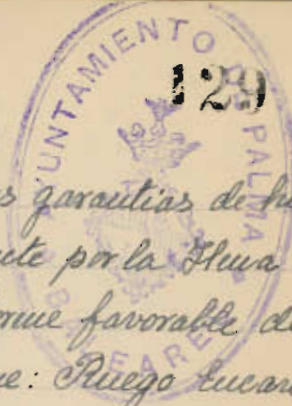 AYUNTAMIENTO DE PALMA
BALEARES
129
s garantias de hi
te por la Ilma
rme favorable de
e: Ruego encare